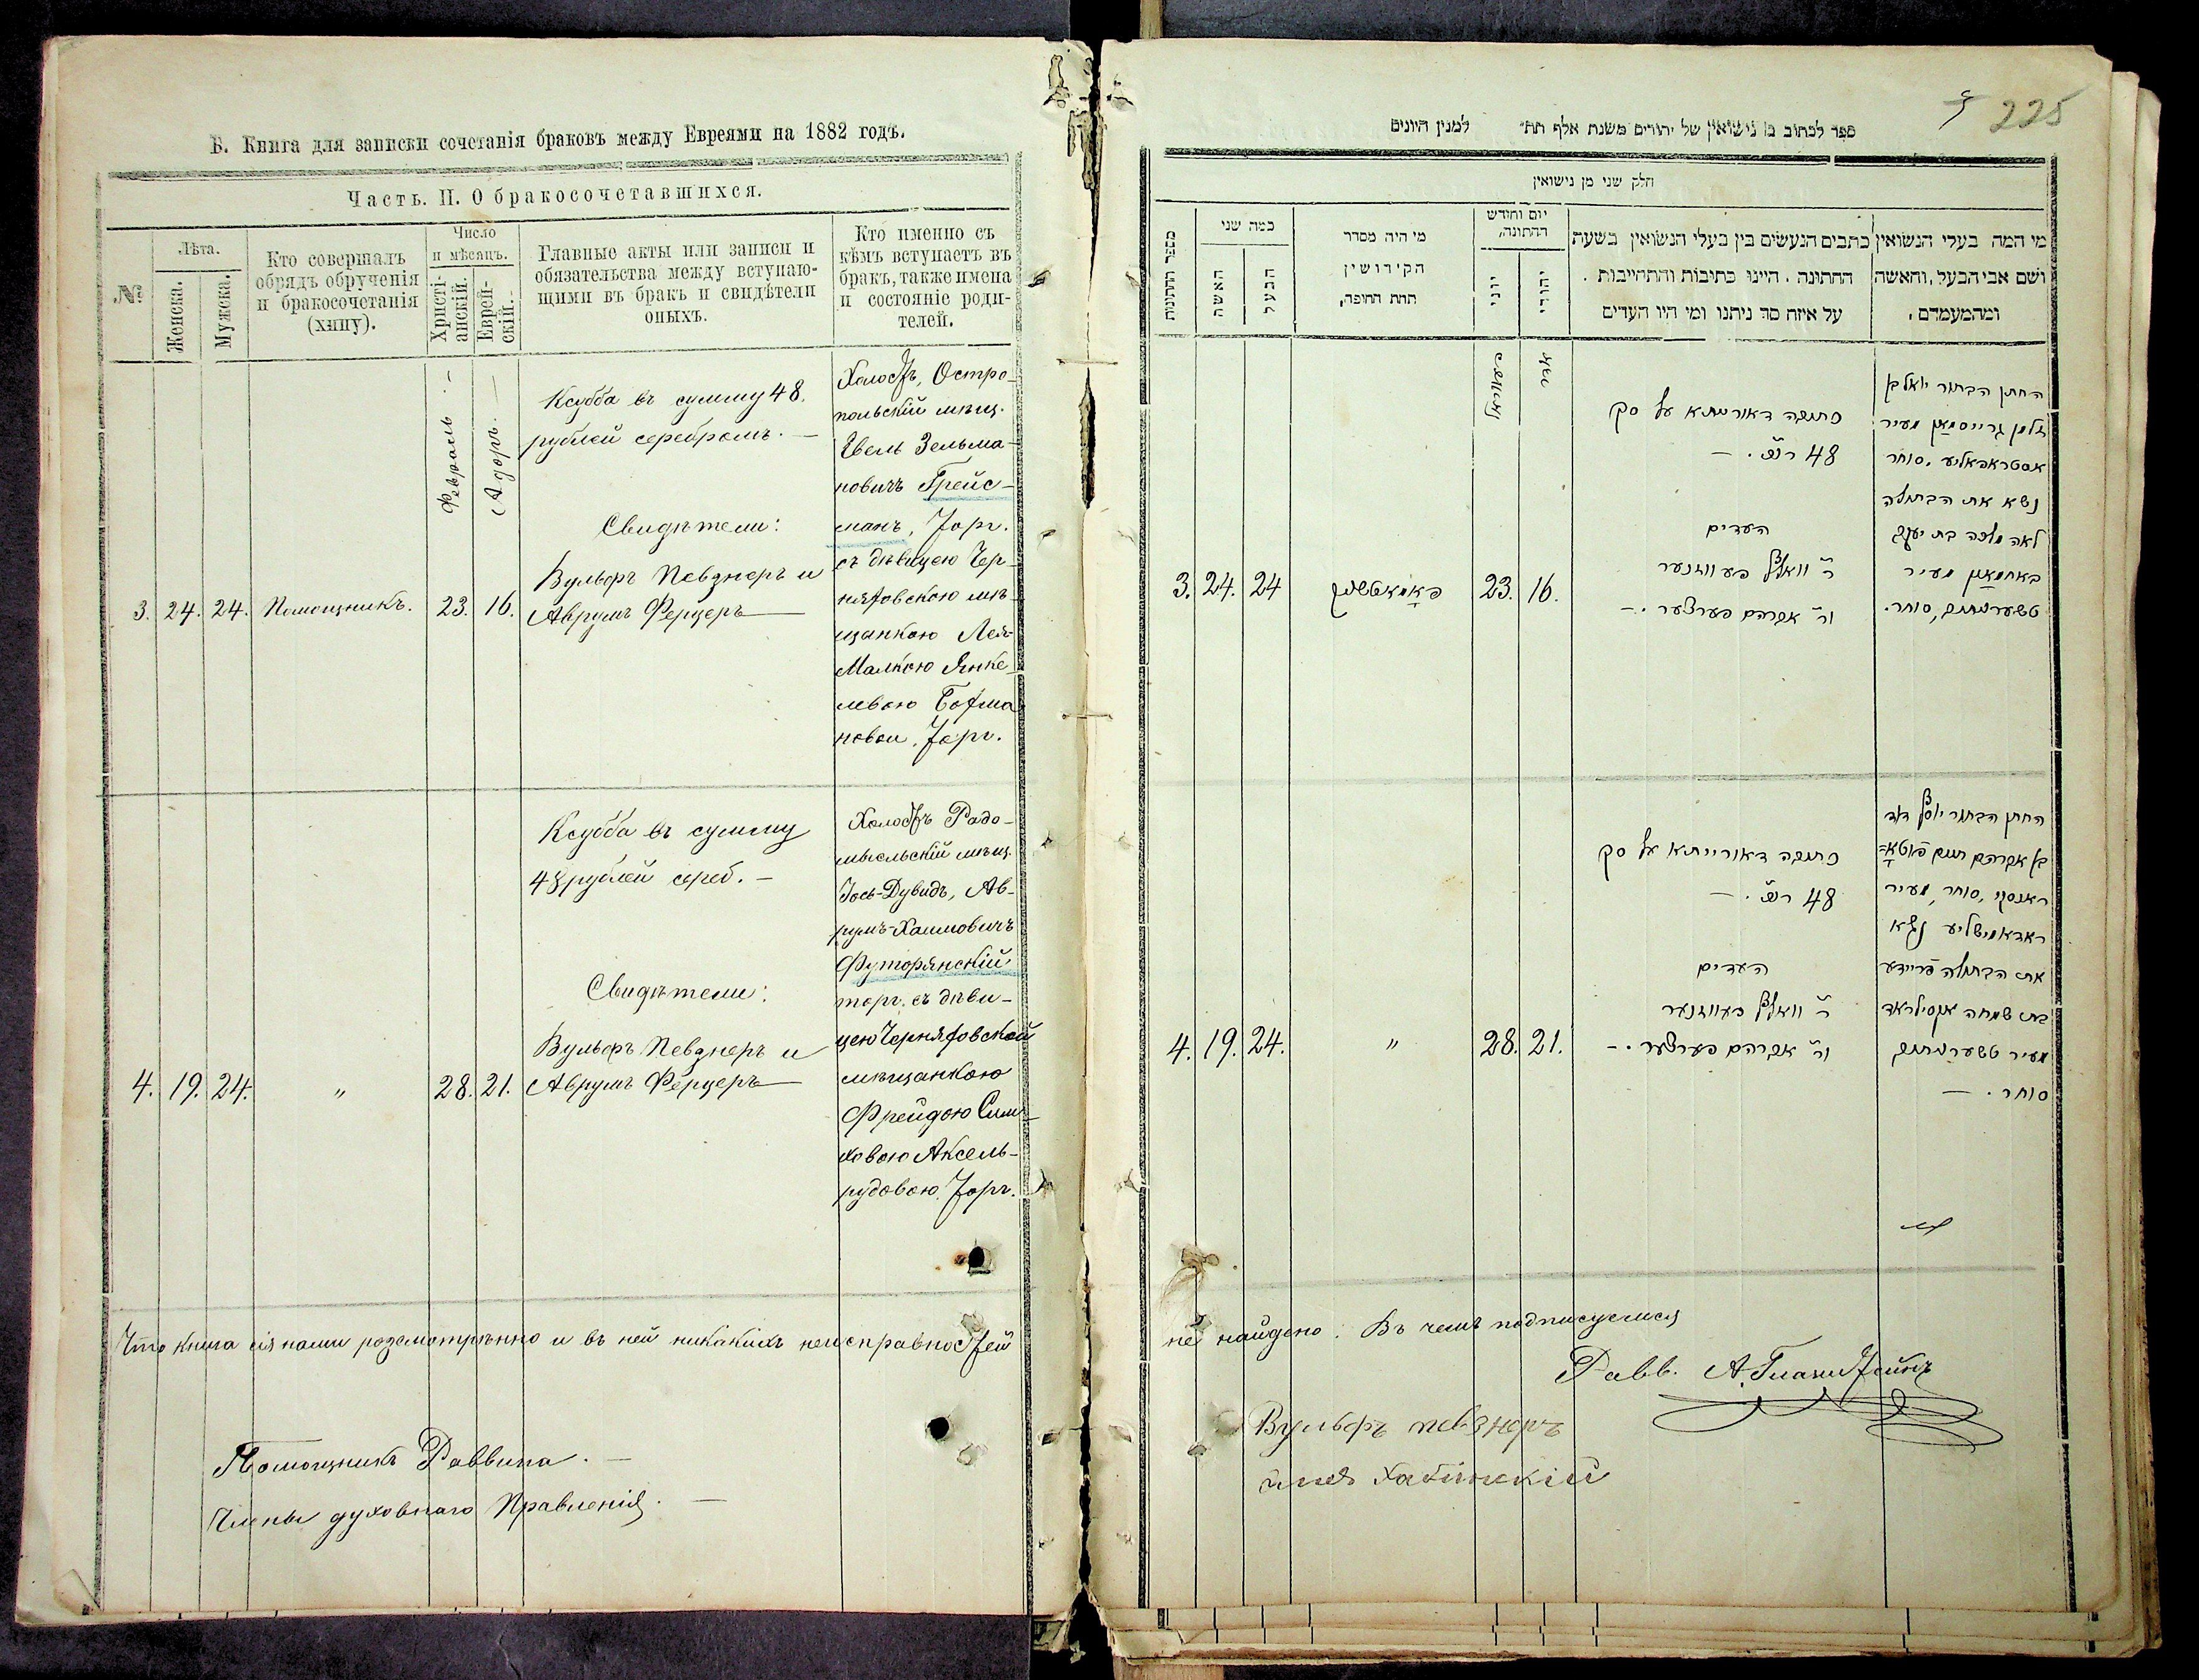 Б. Книга для записки сочетанія браковъ между Евреями на 1882 годъ.
Часть. II. О бракосочетавшихся.
№
Лѣта.
Женска.
Мужска.
Кто совершалъ
обрядъ обрученія
и бракосочетанія
(хипу).
Число
и мѣсяцъ.
Христі-
анскій.
Еврей-
скій.
Главные акты или записи и
обязательства между вступаю-
щими въ бракъ и свидѣтели
оныхъ.
Кто именно съ
кѣмъ вступаетъ въ
бракъ, также имена
и состояніе роди-
телей.
3. 24. 24. Помощникъ.
Февраль
Адоръ.
23. 16.
Ксубба въ сумму 48.
рублей серебромъ. —
Свидѣтели:
Вульфъ Певзнеръ и
Аврумъ Ферцеръ
Холостъ, Остро-
польскій мѣщ.
Івель Зельма-
новичъ Грейс-
манъ, Торг.
съ дѣвицею Чер-
няховскою мѣ-
щанкою Лея-
Малкою Янке-
левою Бохма
новои, Торг.
4. 19. 24. „ 28. 21.
Ксубба въ сумму
48 рублей сереб. —
Свидѣтели:
Вульфъ Певзнеръ и
Аврумъ Ферцеръ
Холостъ Радо-
мысльскій мѣщ.
Іось-Дувидъ, Ав-
румъ-Хаимовичъ
Футорянскій
торг. съ дѣви-
цею Черняховской
мѣщанкою
Фрейдою Сим-
ховою Аксель-
рудовою. Торг.
Что книга сія нами розсмотрѣнно и въ ней никакихъ неисправностей
Помощникъ Раввина. —
Члены духовнаго Правленія. —
225
ספר לכתוב בו נישואין של יהודים משנת אלף תת״ למנין היונים
חלק שני מן נישואין
מספר החתונות
כמה שני
האשה
הבעל
מי היה מסדר
הקידושין
תחת החופה,
יום וחודש
החתונה,
יוני
יהודי
כתבים הנעשים בין בעלי הנשואין בשעת
החתונה. היינו כתיבות והתחייבות.
על איזה סך ניתנו ומי היו העדים
מי המה בעלי הנשואין
ושם אבי הבעל, והאשה
ומהמעמדם,
3. 24. 24
פאמאטשניק
פעווראל
אדר
23. 16.
כתובה דאורייתא על סך
48 רו״כ. —
העדים
ר׳ וואלף פעווזנער
ור׳ אברהם פערצער. —
החתן הבחור יואל בן
זלמן גרייסמאן מעיר
אסטראפאליע, סוחר
נשא את הבתולה
לאה מלכה בת יעקב
באחמאן מעיר
טשערניחוב, סוחר.
4. 19. 24. „ 28. 21.
כתובה דאורייתא על סך
48 רו״כ. —
העדים
ר׳ וואלף פעווזנער
ור׳ אברהם פערצער. —
החתן הבחור יוסף דוד
בן אברהם חיים פוטא-
ראנסקי, סוחר, מעיר
ראדאמישליע נשא
את הבתולה פריידע
בת שמחה אקסילראד
מעיר טשערניחוב
סוחר. —
не найдено. Въ чемъ подписуемся
Равв. А. Гланштейнъ
Вульфъ певзнеръ